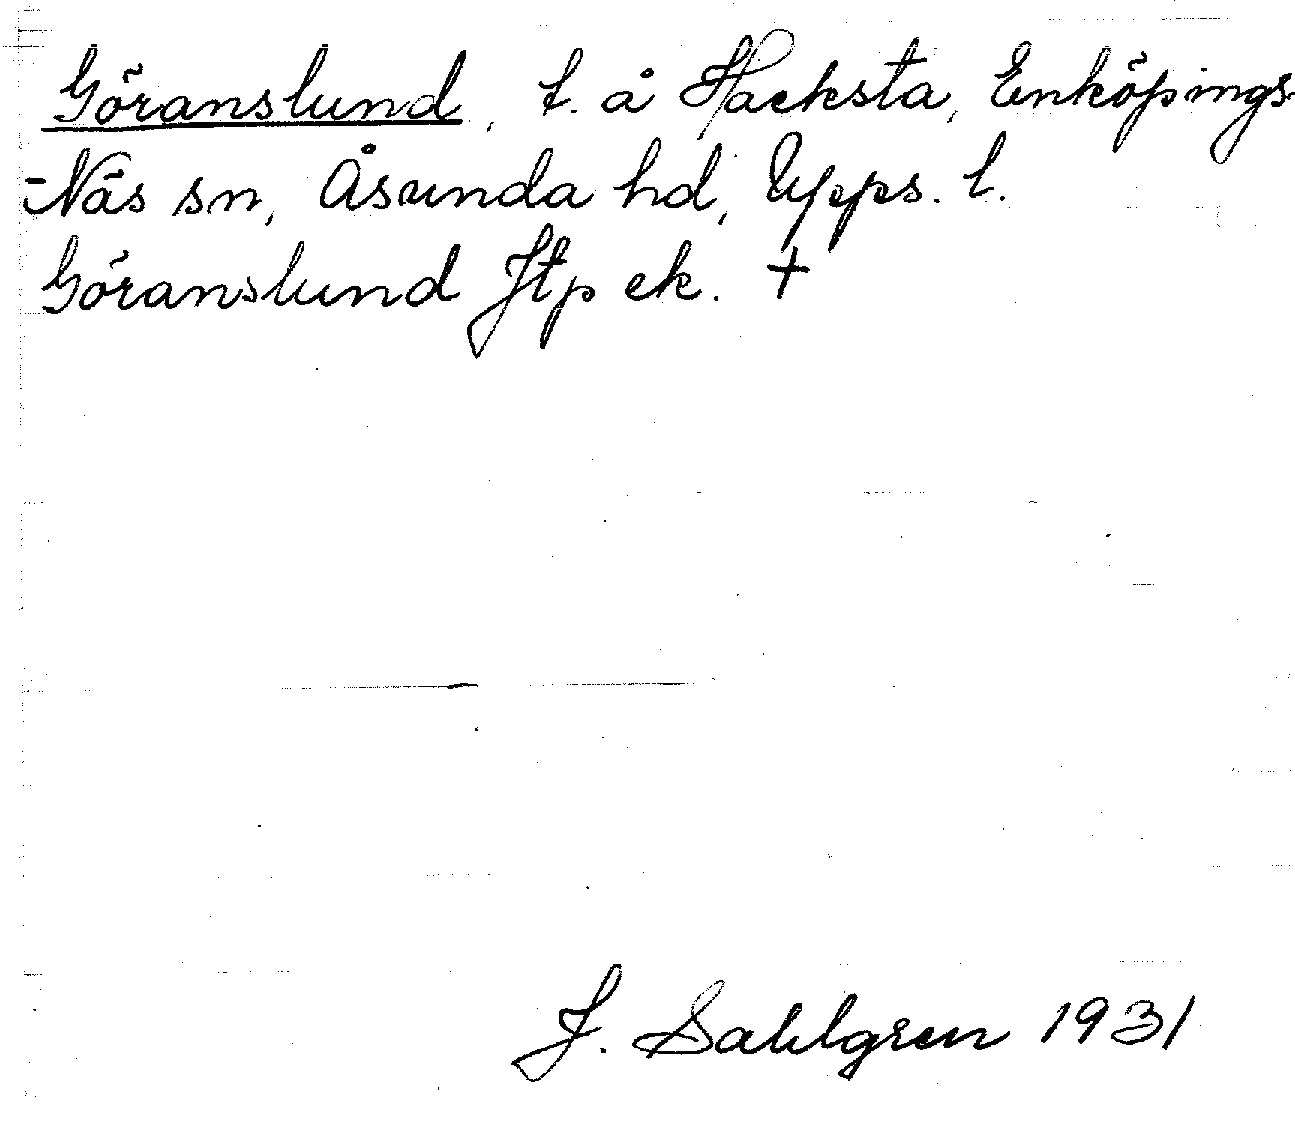 Göranslund, t. å Hacksta, Enköpings
-Näs sn, Åsunda hd, Upps. l.
Göranslund Jtp ek. +
J. Sahlgren 1931